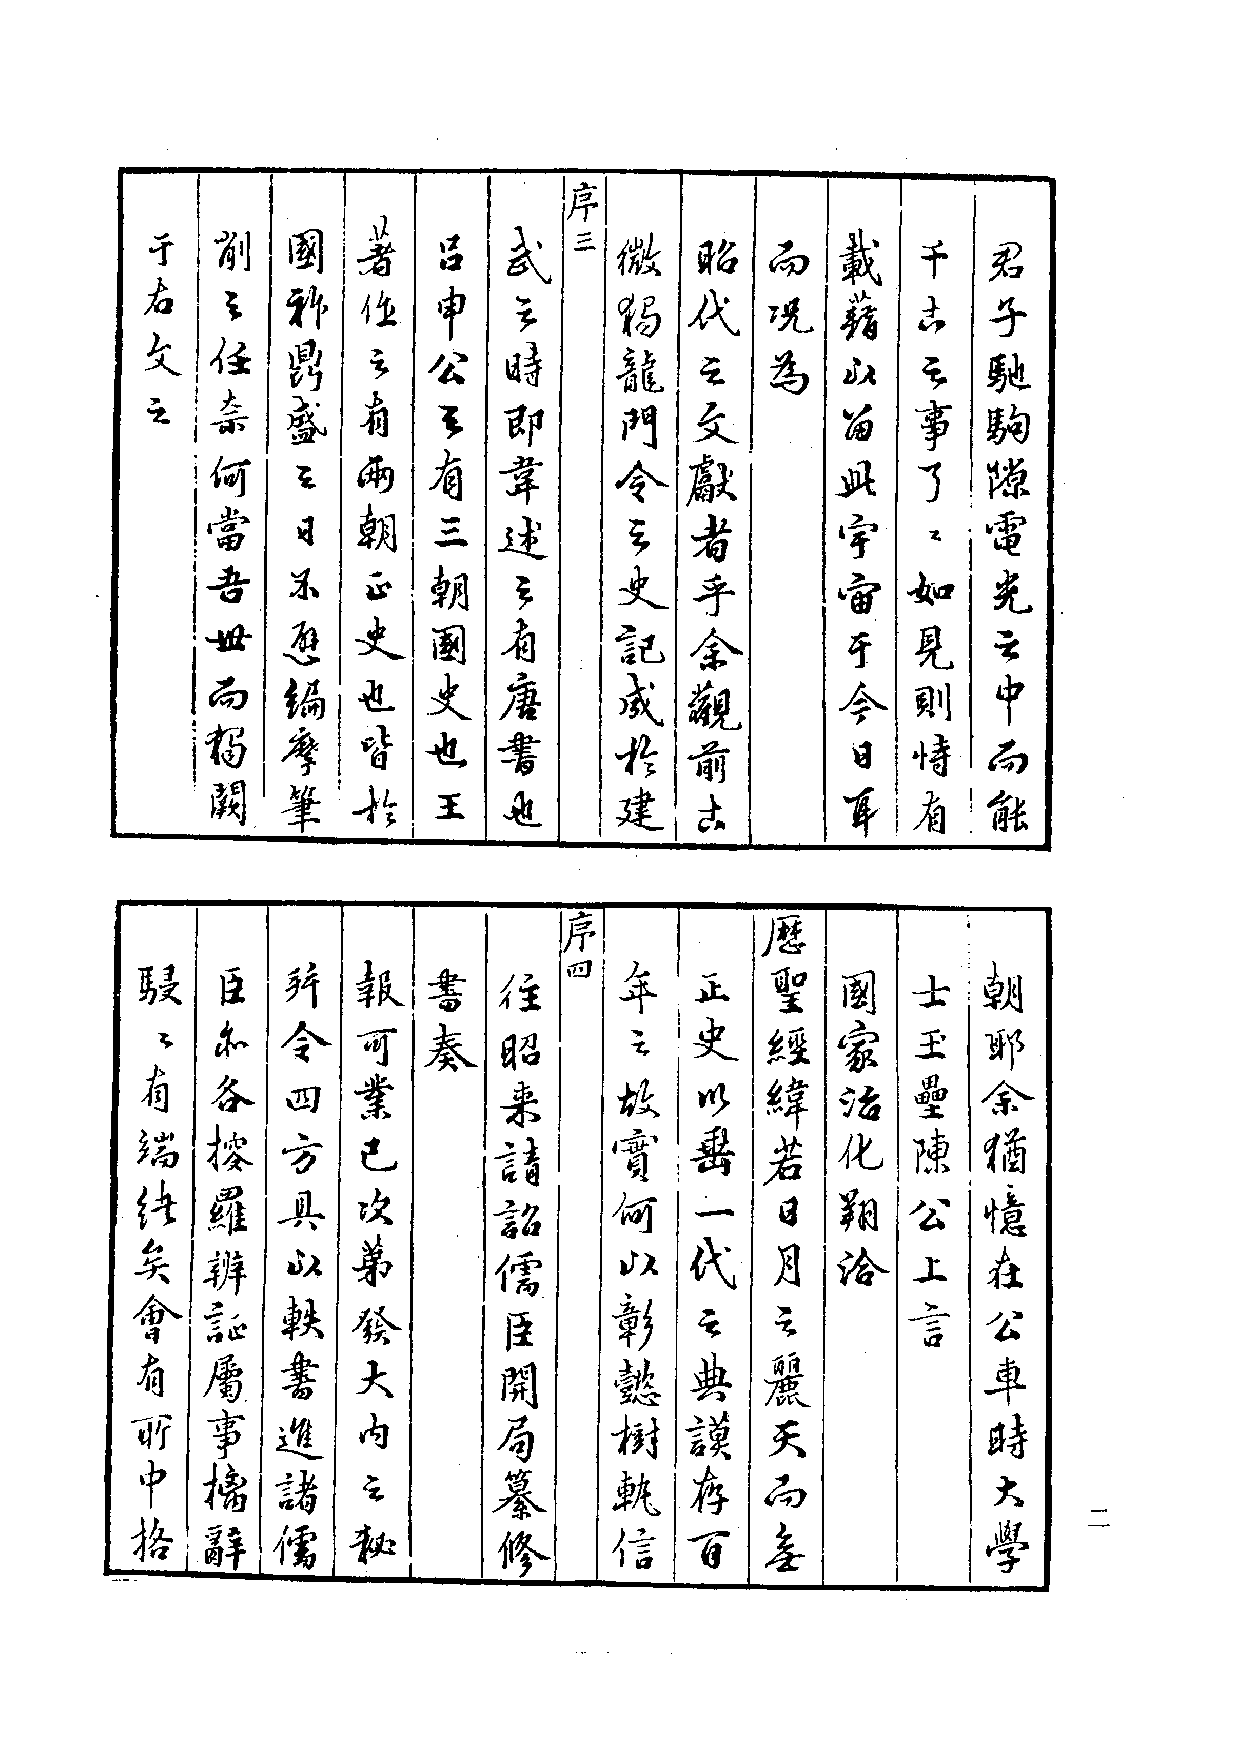 君子馳駒隙電光之中而能
千古之事了〻如見則恃有
載藉以留此宇宙于今日耳
而况為
昭代之文獻者乎余觀前古
微獨龍門令之史記成於建
序三
武之時即韋述之有唐書也
呂申公之有三朝國史也王
著作之有兩朝正史也皆於
國祚鼎盛之日不歷編摩筆
削之任柰何當吾世而獨闕
于右文之
朝耶余猶憶在公車時大學
士玉壘陳公上言
國家治化翔洽
歷聖經緯若日月之麗天而無
正史以垂一代之典謨存百
年之故實何以彰懿樹軌信
序四
徃昭来請詔儒臣開局纂修
書奏
報可業已次第發大内之秘
并令四方具以軼書進諸儒
臣亦各搜羅辨証屬事摛辭
駸〻有端緒矣會有所中格
二